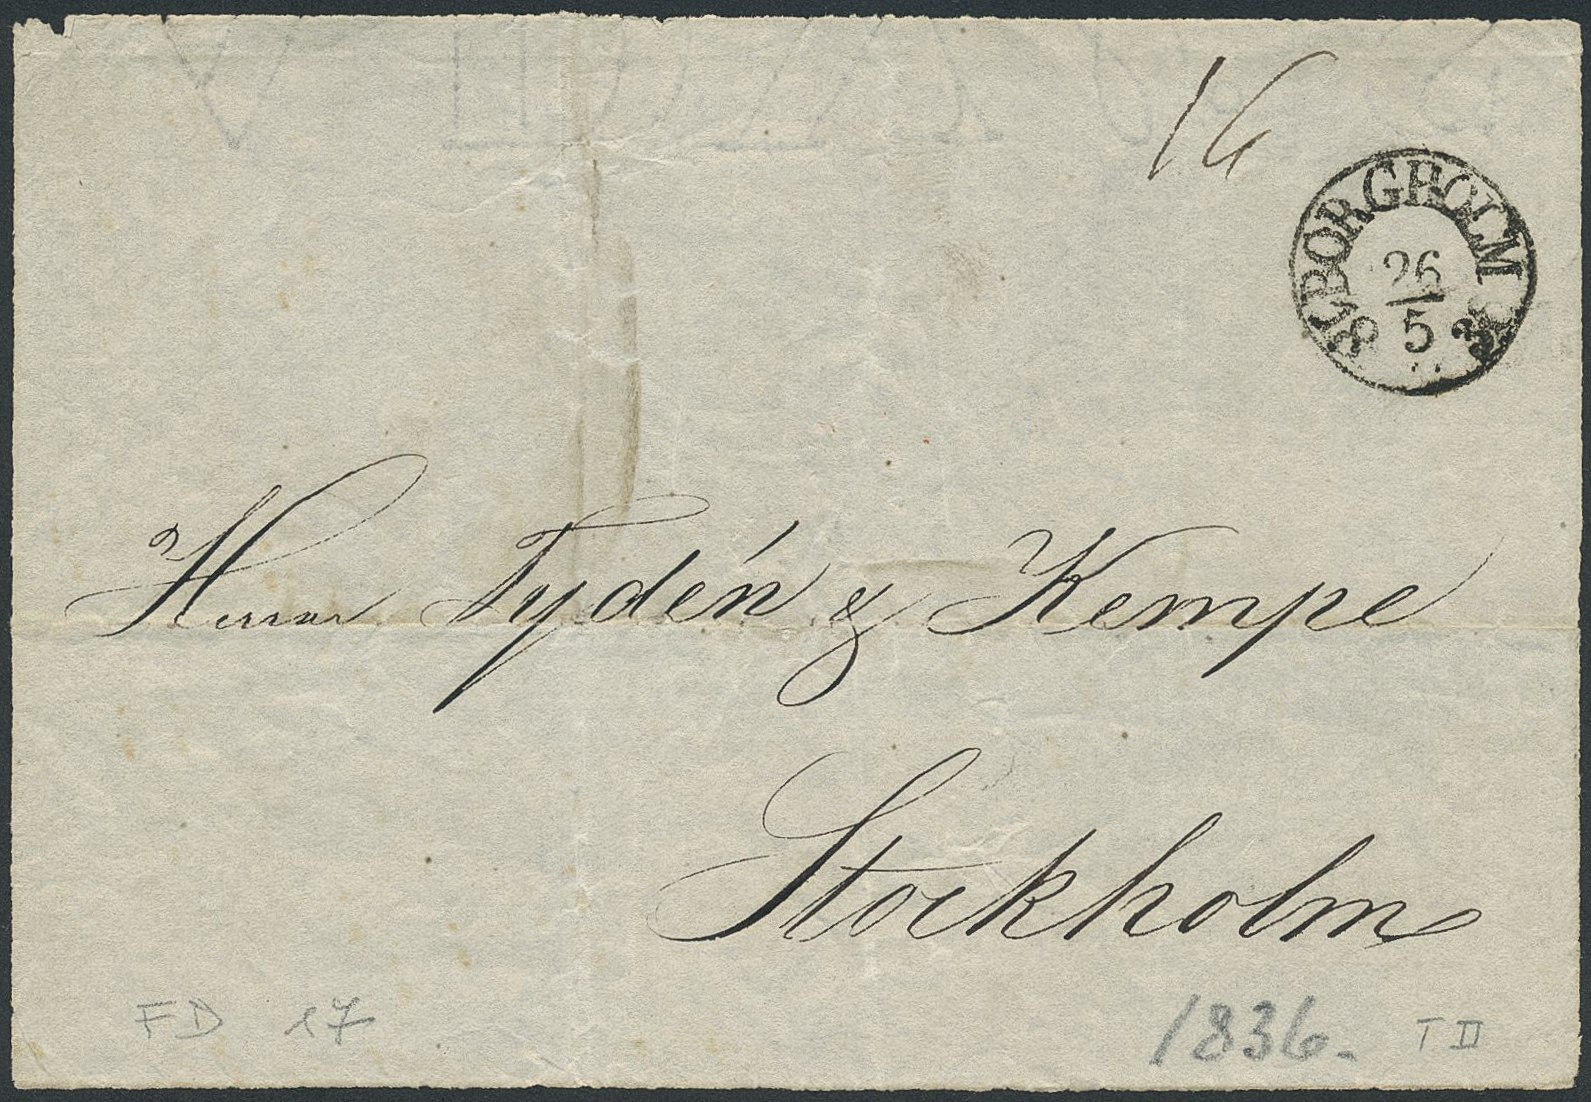 16
BORGHOLM
26
5
Herrar Tydén & Kempe
Stockholm
FD 17 1836. T II